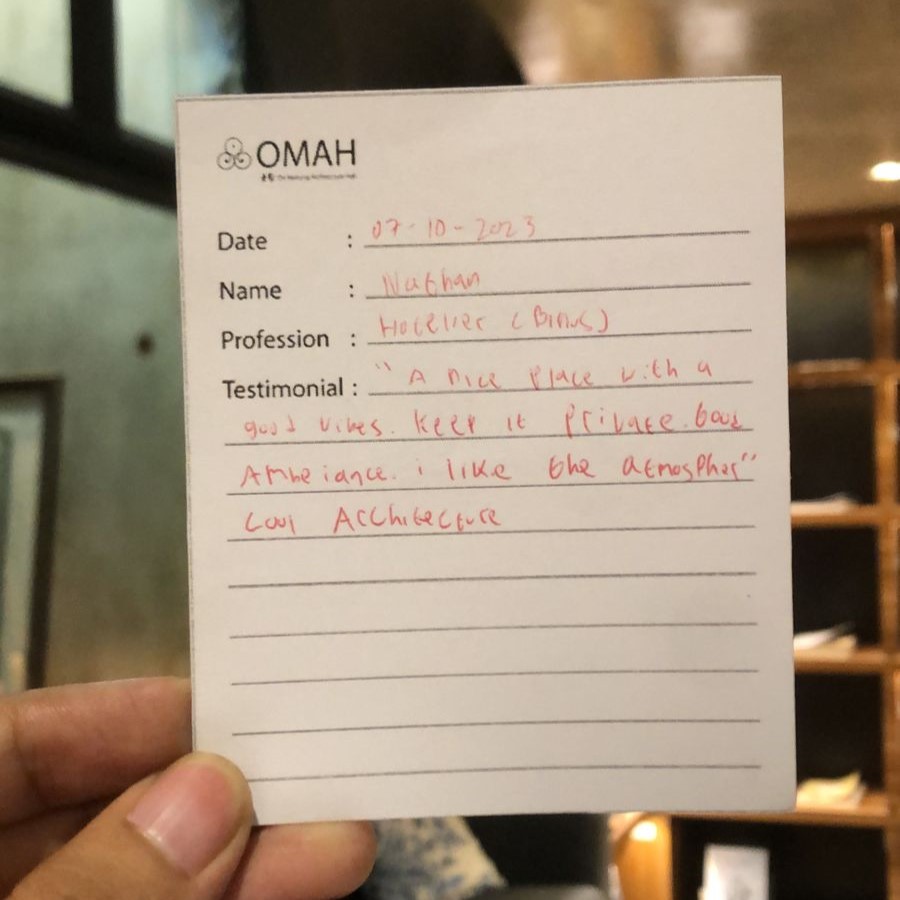 OMAH
Date : 07-10-2023
Name : Nathan
Profession : Hotelier (Binus)
Testimonial : "A nice place with a
good vibes. Keep it private. Good
Ambeiance. i like the atmospher"
Cool Architecture